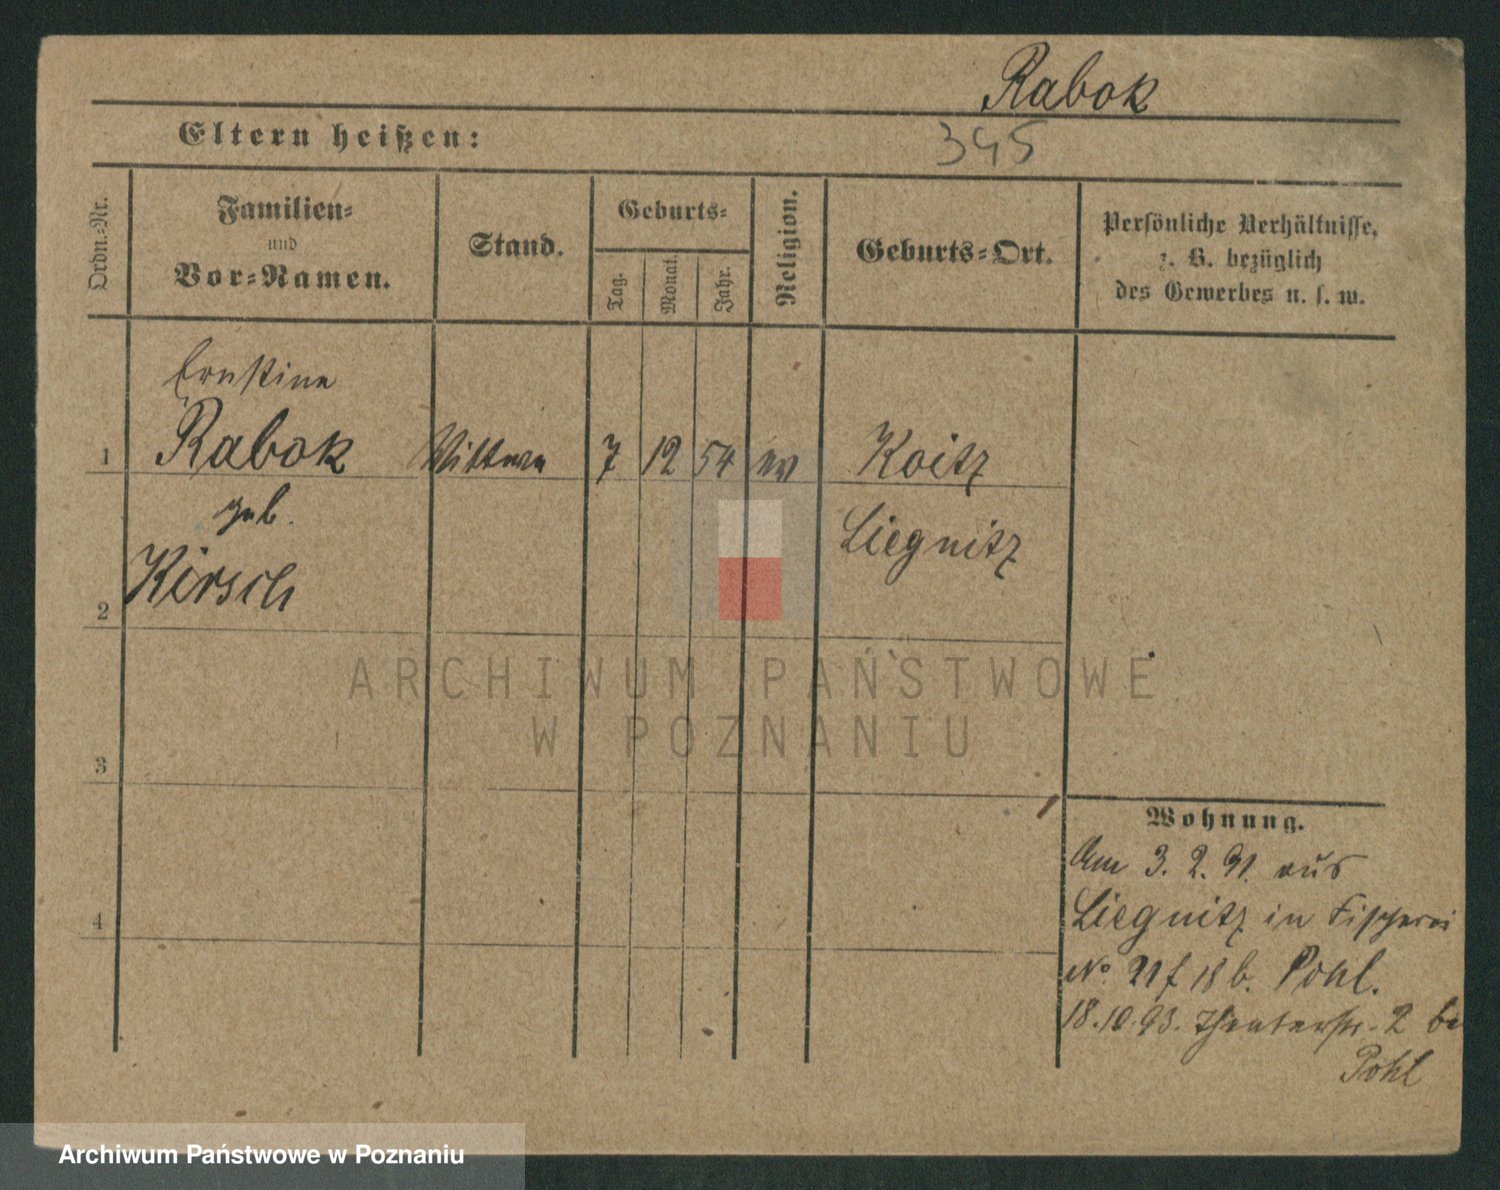 Rabok
345
Eltern heißen:
Ordn.-Nr.
Familien-
und
Vor-Namen.
Stand.
Geburts-
Tag.
Monat.
Jahr.
Religion.
Geburts-Ort.
Persönliche Verhältnisse,
z. B. bezüglich
des Gewerbes u. s. w.
Ernstine
1 Rabok Wittwe 7 12 54 ev Koitz
geb.
Liegnitz
2 Kirsch
ARCHIWUM PAŃSTWOWE
W POZNANIU
3
4
Wohnung.
Am 3. 2. 91. aus
Liegnitz in Fischerei
No. 21 18 b. Pohl.
18.10.93. Theaterstr. 2 bei
Pohl
Archiwum Państwowe w Poznaniu